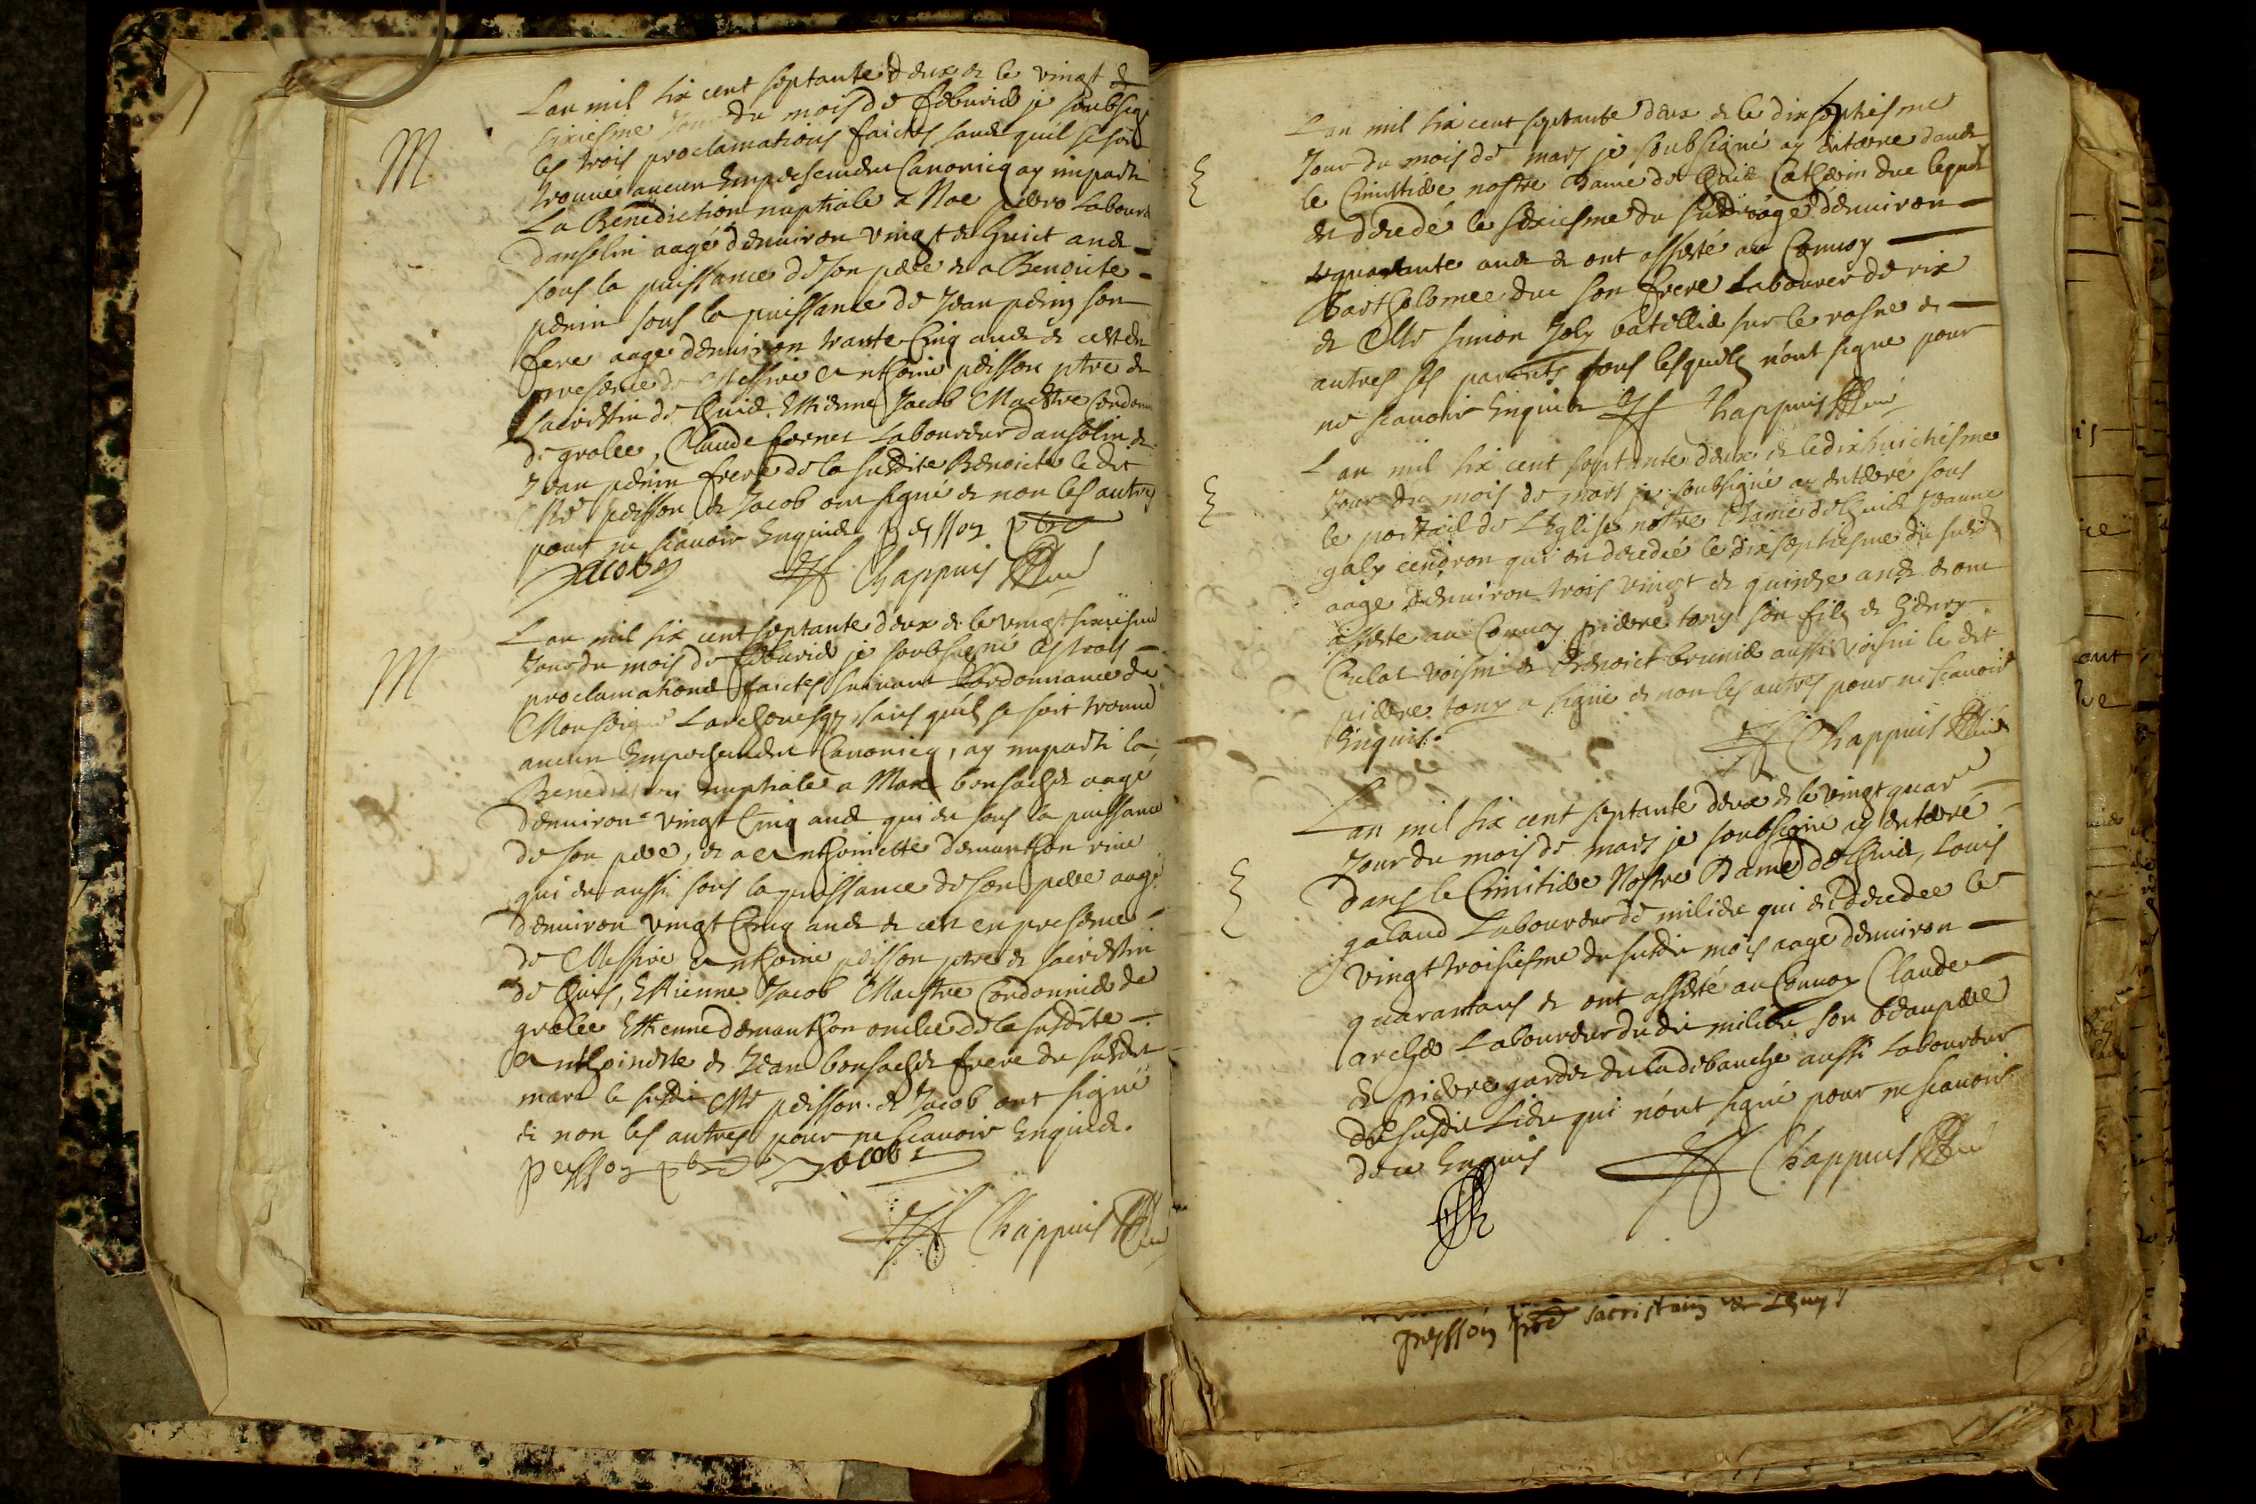 Lan mil six cent septante deux et le vingt et
sixiesme Jour du mois de febvrier je soubsig
les trois proclamations faictes sans quil se soit
trouvé aucun Empeschement Canonicq ay imparti
La Benediction nuptiale a Noe Labour
danselin aagé denviron vingt et huict ans
sous la puissance de son pere et a Benoicte
perin sous la puissance de Jean perin son
frere aage denviron trante Cinq ans et cest en
presence de Messire Anthoine peisson ptre et
sacristin de Quis, Estienne Jacob Maistre Cordonn
de grolee, Claude fornet Laboureur danselin et
Jean perin frere de la susdite Benoicte le dit
Mre peisson et Jacob ont signé et non les autres
pour ne scavoir Enquis peysson pbre
Jacob Chappuis
M
Lan mil six cent septante deux et le vingt sixiesme
Jour du mois de febvrier je soubsigné les trois
proclamations faictes suivant Lordonnance de
Monseigneur Larchevesque, sans quil se soit trouvé
aucun Empeschement Canonicq, ay imparti la
Benediction nuptiale a Marc bonsachet aagé
denviron vingt Cinq ans qui est sous la puissance
de son pere, et a Anthoinette demanthon
qui est aussi sous la puissance de son pere aagé
denviron vingt Cinq ans et cest en presence
de Messire Anthoine peisson ptre et sacristin
de Quis, Estienne Jacob Maistre Cordonnier de
grolee Estienne demanthon oncle de la susdite
Anthoinette et Jean bonsachet frere du susdit
marc le susdit Mre peisson et Jacob ont signé
et non les autres pour ne scavoir Enquis.
peysson pbre Jacob
Chappuis
M
Lan mil six cent septante deux et le dixseptiesme
Jour du mois de mars je soubsigné ay Enterré dans
le Cimitiere nostre Dame de Quis Catherin duc lequel
est decedé le seziesme du susdit aagé denviron
quarante ans et ont assisté au Convoy
Bartholomee duc son frere Laboureur de rix
et Mre simon Joly batellier sur le rosne et
autres ses parents tous lesquels nont signe pour
ne scavoir Enquis Chappuis
E
Lan mil six cent septante deux et le dixhuictiesme
Jour du mois de mars je soubsigné ay enterré sous
le portail de LEglise nostre Dame de Quis Jeanne
galy cendron qui est decedée le dixseptiesme du susdit
aage denviron trois vingt et quinze ans et ont
assisté au Convoy pierre tony son fils et
Culat voisin et Benoict brunier aussi voisin le dit
pierre tony a signé et non les autres pour ne scavoir
Enquis. Chappuis
E
Lan mil six cent septante deux et le vingt quatre
Jour du mois de mars je soubsigné ay enterré
dans le Cimitiere Nostre Dame de Quis, Louis
galand Laboureur de milieu qui est decedee le
vingt troisiesme du susdit mois aage denviron
quarantans et ont assisté au Convoy Claude
archer Laboureur dudit milieu son beaupere
et pierre gardet de la debauche aussi Laboureur
du susdit Lieu qui nont signé pour ne scavoir
de ce Enquis Chappuis
E
peysson pbre sacristain de Lhuys